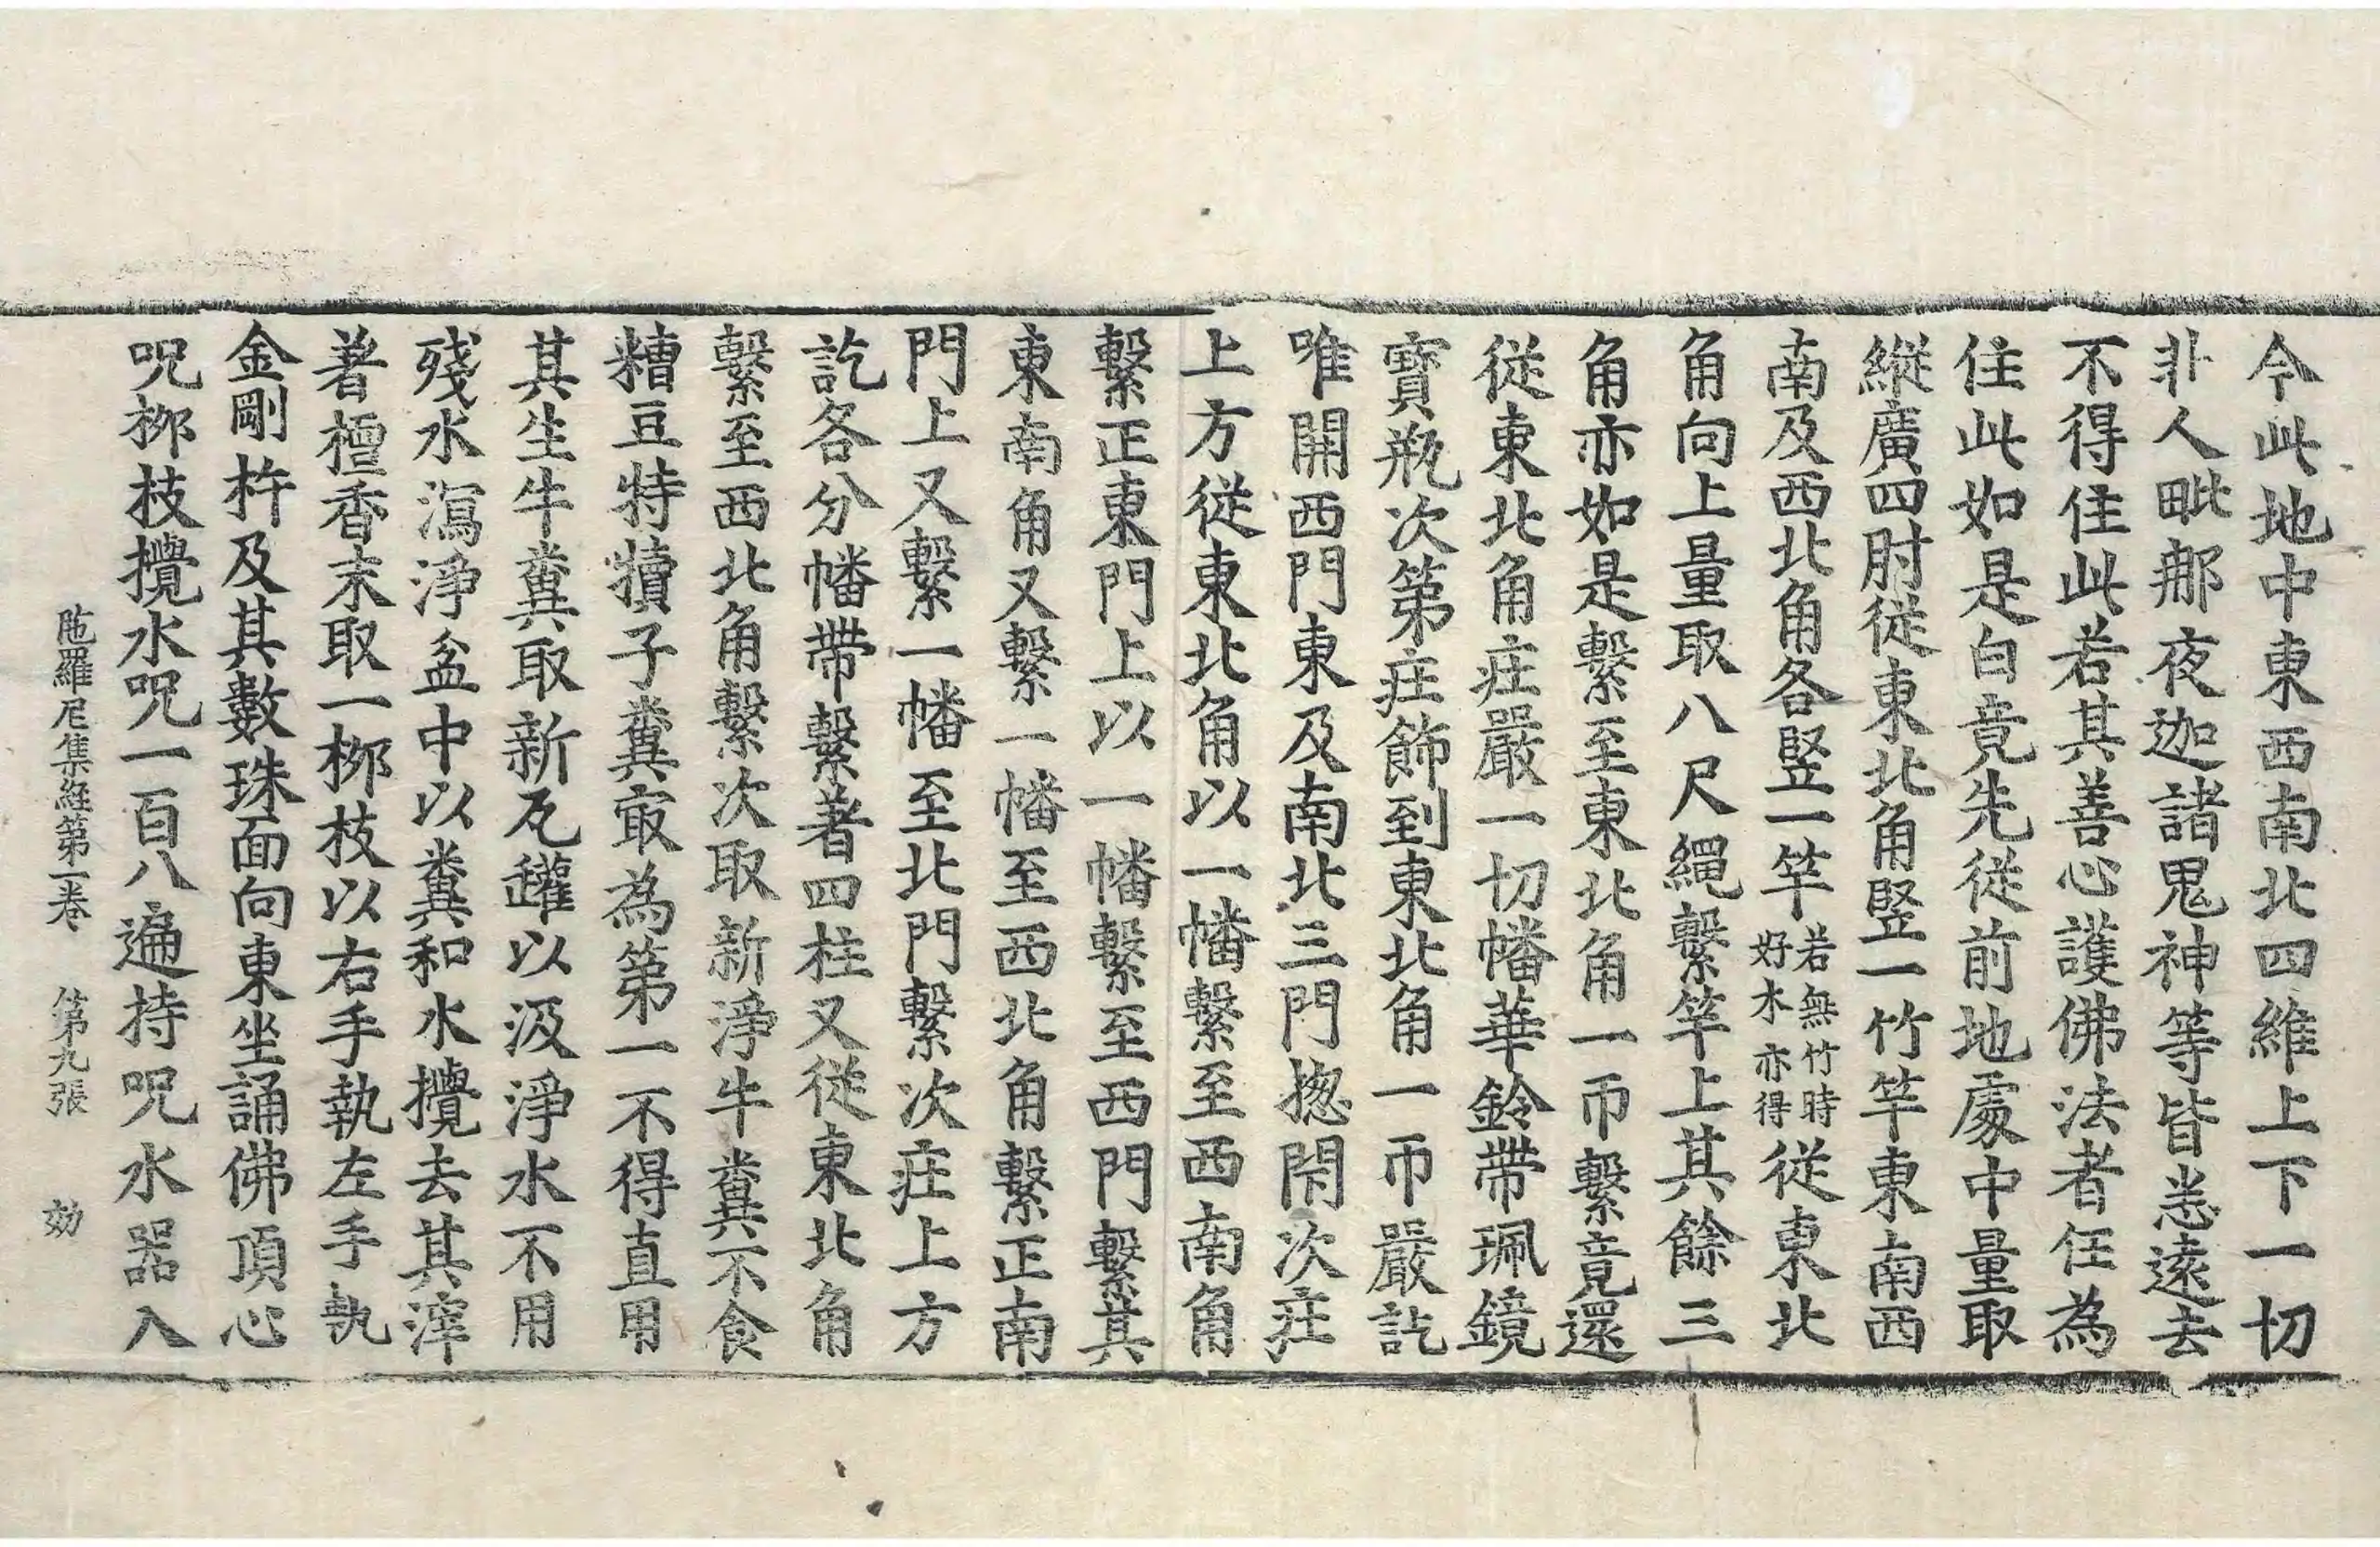 今此地中東西南北四維上下一切
非人毗那夜迦諸鬼神等皆悉遠去
不得住此若其善心護佛法者任為
住此如是白竟先從前地處中量取
縱廣四肘從東北角竪一竹竿東南西
南及西北角各竪一竿若無竹時好木亦得從東北
角向上量取八尺繩繫竿上其餘三
角亦如是繫至東北角一帀繫竟還
從東北角莊嚴一切幡華鈴帶珮鏡
寶瓶次第莊飾到東北角一帀嚴訖
唯開西門東及南北三門揔閇次莊
上方從東北角以一幡繫至西南角
繫正東門上以一幡繫至西門繫其
東南角又繫一幡至西北角繫正南
門上又繫一幡至北門繫次莊上方
訖各分幡帶繫著四柱又從東北角
繫至西北角繫次取新淨牛糞不食
糟豆特犢子糞㝡為第一不得直用
其生牛糞取新瓦罐以汲淨水不用
殘水瀉淨盆中以糞和水攪去其滓
著檀香末取一桞枝以右手執左手執
金剛杵及其數珠面向東坐誦佛頂心
呪桞枝攪水呪一百八遍持呪水器入
陁羅尼集経第一卷　第九張　効